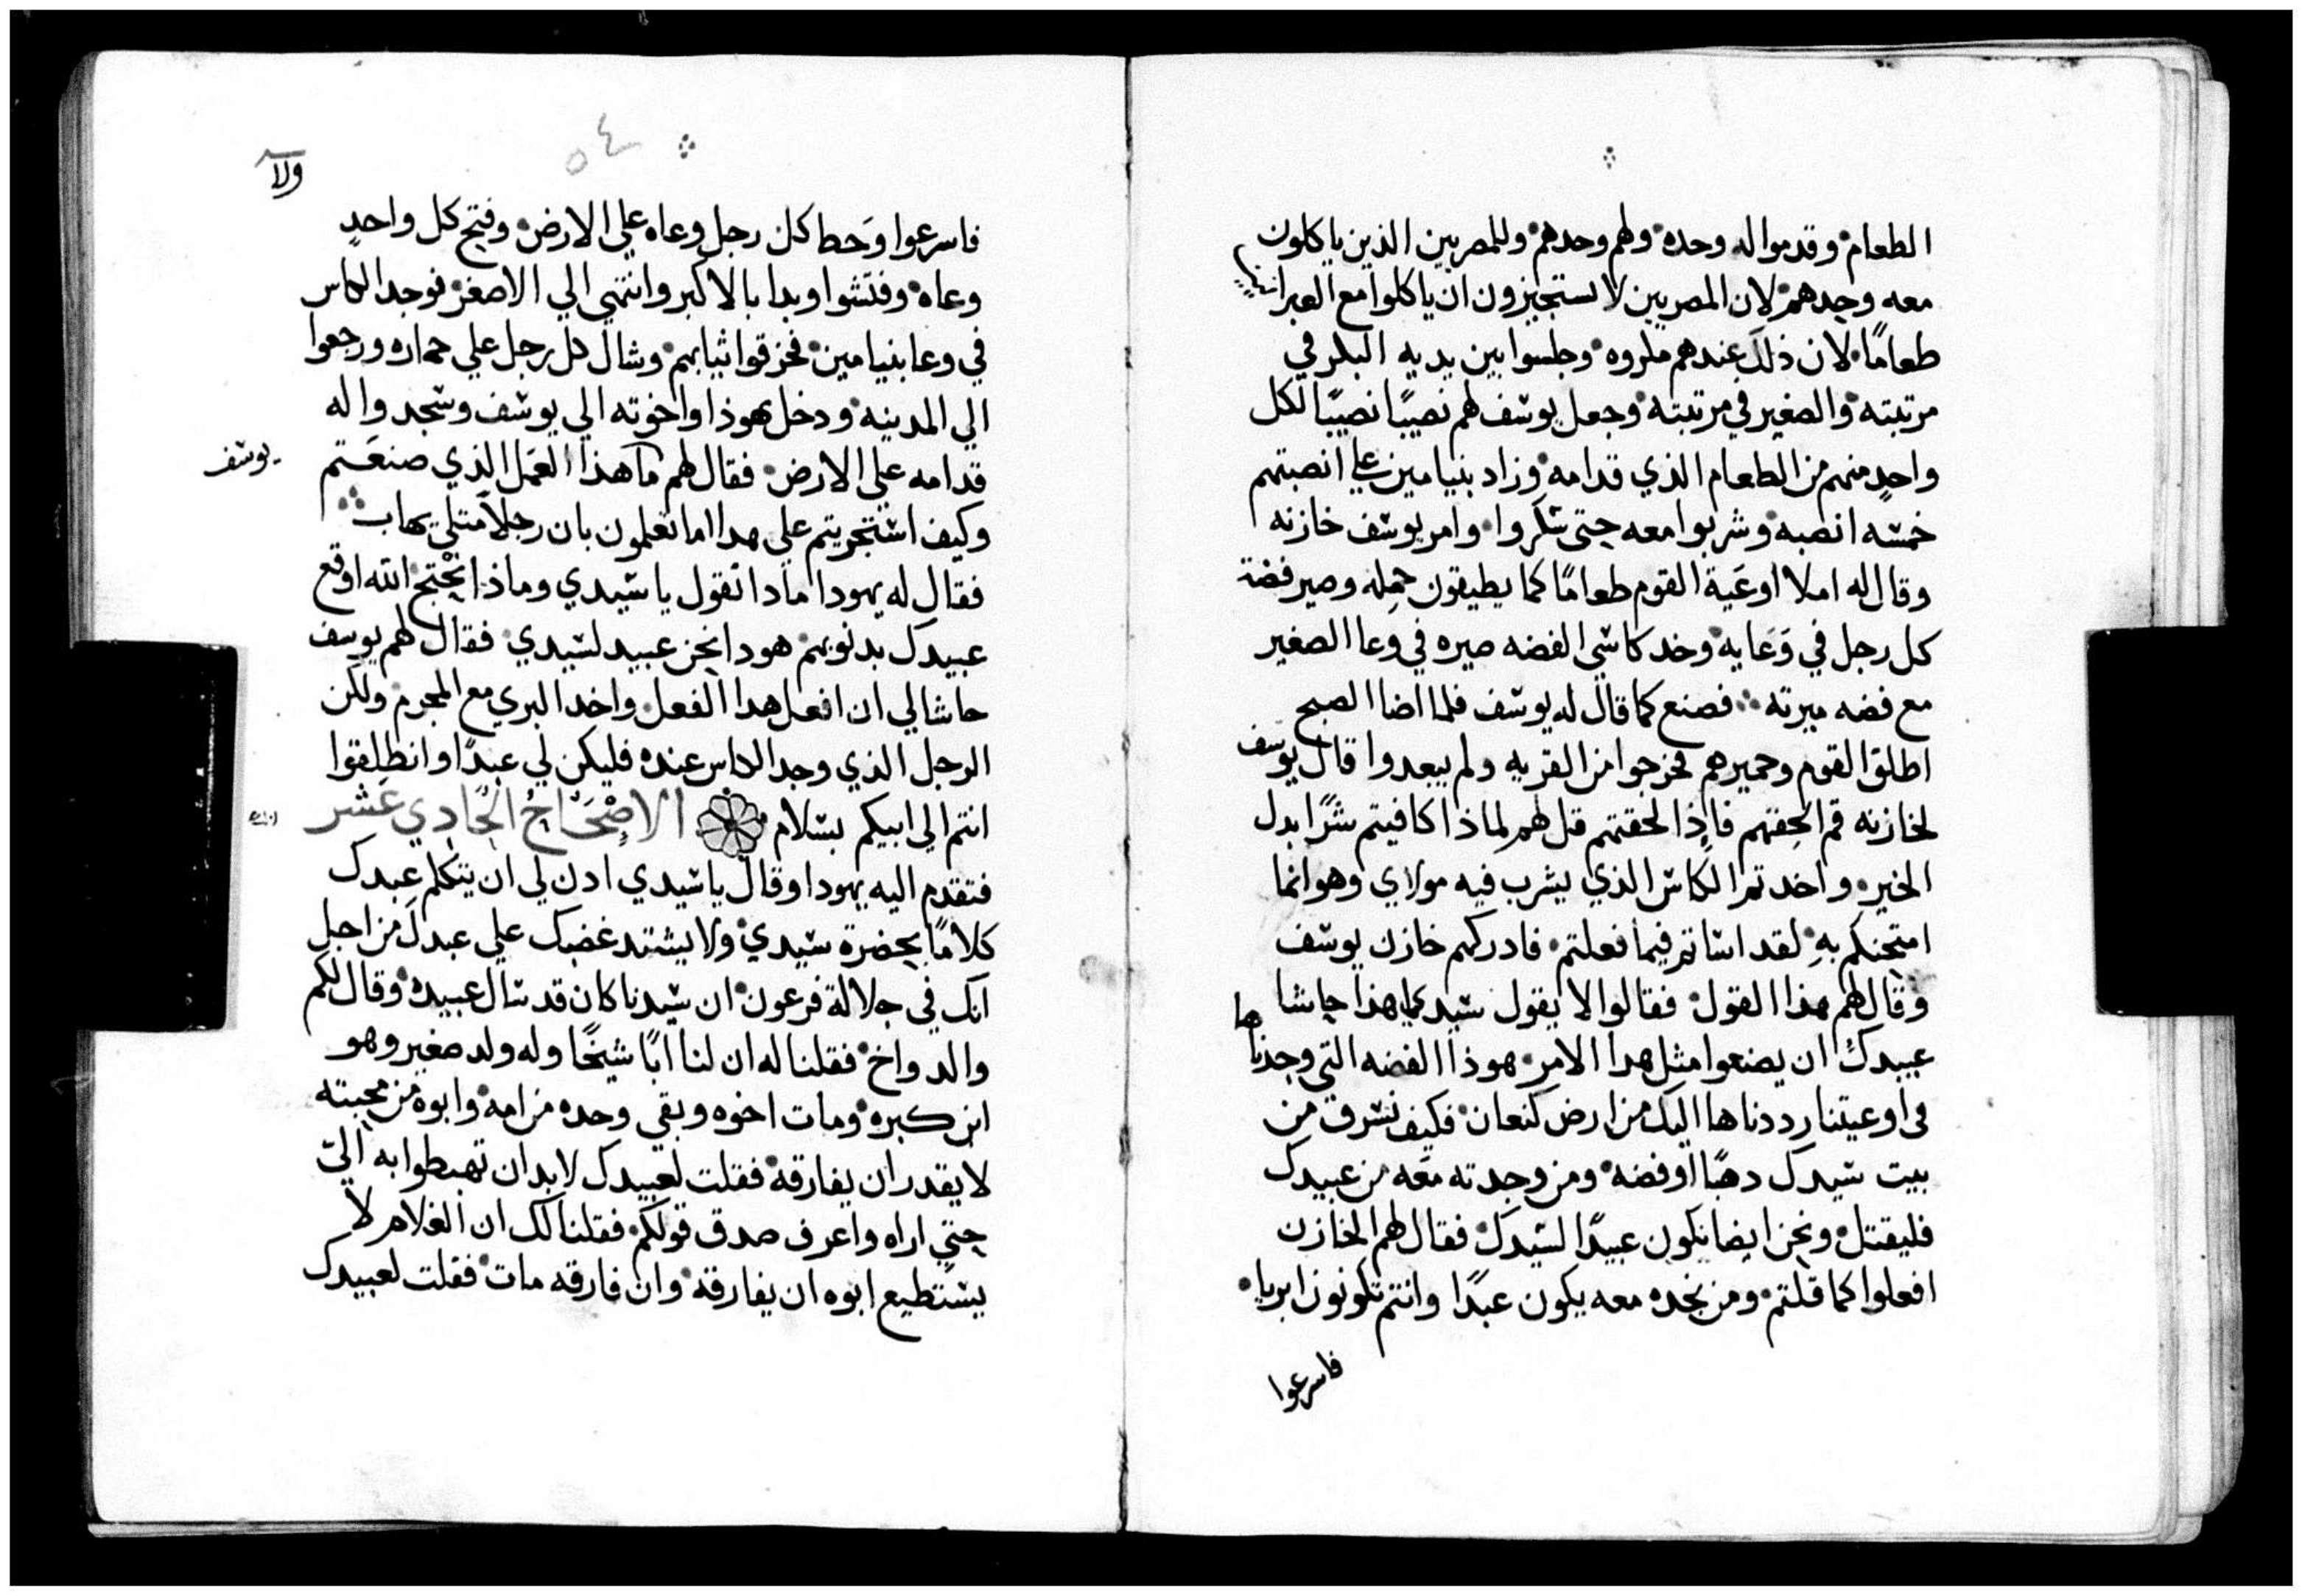 الطعام وقدموا له وحده ولهم وحدهم وللمصريين الذين ياكلون
معه وحدهم لان المصريين لا يستجيزون ان ياكلوا مع العبرانيين
طعامًا لان ذلك عندهم مكروه وجلسوا بين يديه البكر في
مرتبته والصغير في مرتبته وجعل يوسف لهم نصيبًا نصيبًا لكل
واحدٍ منهم من الطعام الذي قدامه وزاد بنيامين علي انصبتهم
خمسه انصبه وشربوا معه حتى سكروا وامر يوسف خازنه
وقال له املا اوعَية القوم طعامًا كما يطيقون حمله وصير فضة
كل رجل في وَعَايه وخد كاسي الفضه صيره في وعا الصغير
مع فضه ميرته فصنع كما قال له يوسف فلما اضا الصبح
اطلق القوم وحميرهم فخرجوا من القريه ولم يبعدوا قال يوسف
لخازنه قم الحقهم فاذا لحقتهم قل لهم لماذا كافيتم شرًا بدل
الخير واخدتم الكاس الذي يشرب فيه مولاي وهو انما
امتحنكم بهِ لقد اساتم فيما فعلتم فادركهم خازن يوسف
وقال لهم بهذا القول فقالوا لا يقول سيدنا هذا حاشا
عبيدك ان يصنعوا مثل هدا الامر هوذا الفضه التي وجدناها
في اوعيتنا رددناها اليك من ارض كنعان فكيف نسرق من
بيت سيدك دهبًا او فضه ومن وجدته معه من عبيدك
فليقتل ونحن ايضا نكون عبيدًا لسيدك فقال لهم الخازن
افعلوا كما قلتم ومن نجده معه يكون عبدًا وانتم تكونون ابريا
فاسرعوا
٥٤
ولا
فاسرعوا وَحط كل رجل وعاه علي الارض وفتح كل واحدٍ
وعاه وفتشوا وبدا بالاكبر وانتهي الي الاصغر فوجد الكاس
في وعا بنيامين فخرقوا ثيابهم وشال كل رجل علي حماره ورجعوا
الي المدينه ودخل يهوذا واخوته الي يوسف وسجدوا له
قدامه علي الارض فقال لهم ما هذا العَمل الذي صنعَتم
يوسف
وكيف استجريتم علي هدا اما تعلمون بان رجلاً متلي يهاب
فقال له يهودا مادا نقول يا سيدي وماذا نحْتج الله اوقع
عبيدك بدنوبهم هودا نحن عبيد لسيدي فقال لهم يوسف
حاشا لي ان افعل هدا الفعل واخد البري مع المجرم ولكن
الرجل الذي وجد الكاس عنده فليكن لي عبدًا وانطلقوا
انتم الي ابيكم بسلام الاصْحَاحُ الحَادِي عَشر
فتقدم اليه يهودا وقال يا سيدي ادن لي ان يتكلم عبدك
كلامًا بحضرة سيدي ولا يشتد غضبك علي عبدك من اجل
انك في جلالة فرعون ان سيدنا كان قد سال عبيده وقال لكم
والد واخ فقلنا له ان لنا ابًا شيخًا وله ولد صغير وهو
ابن كبره ومات اخوه وبقي وحده من امه وابوه من محبته
لا يقدر ان يفارقه فقلت لعبيدك لا بد ان تهبطوا به اليّ
حتي اراه واعرف صدق قولكم فقلنا لك ان الغلام لا
يستطيع ابوه ان يفارقه وان فارقه مات فقلت لعبيدك